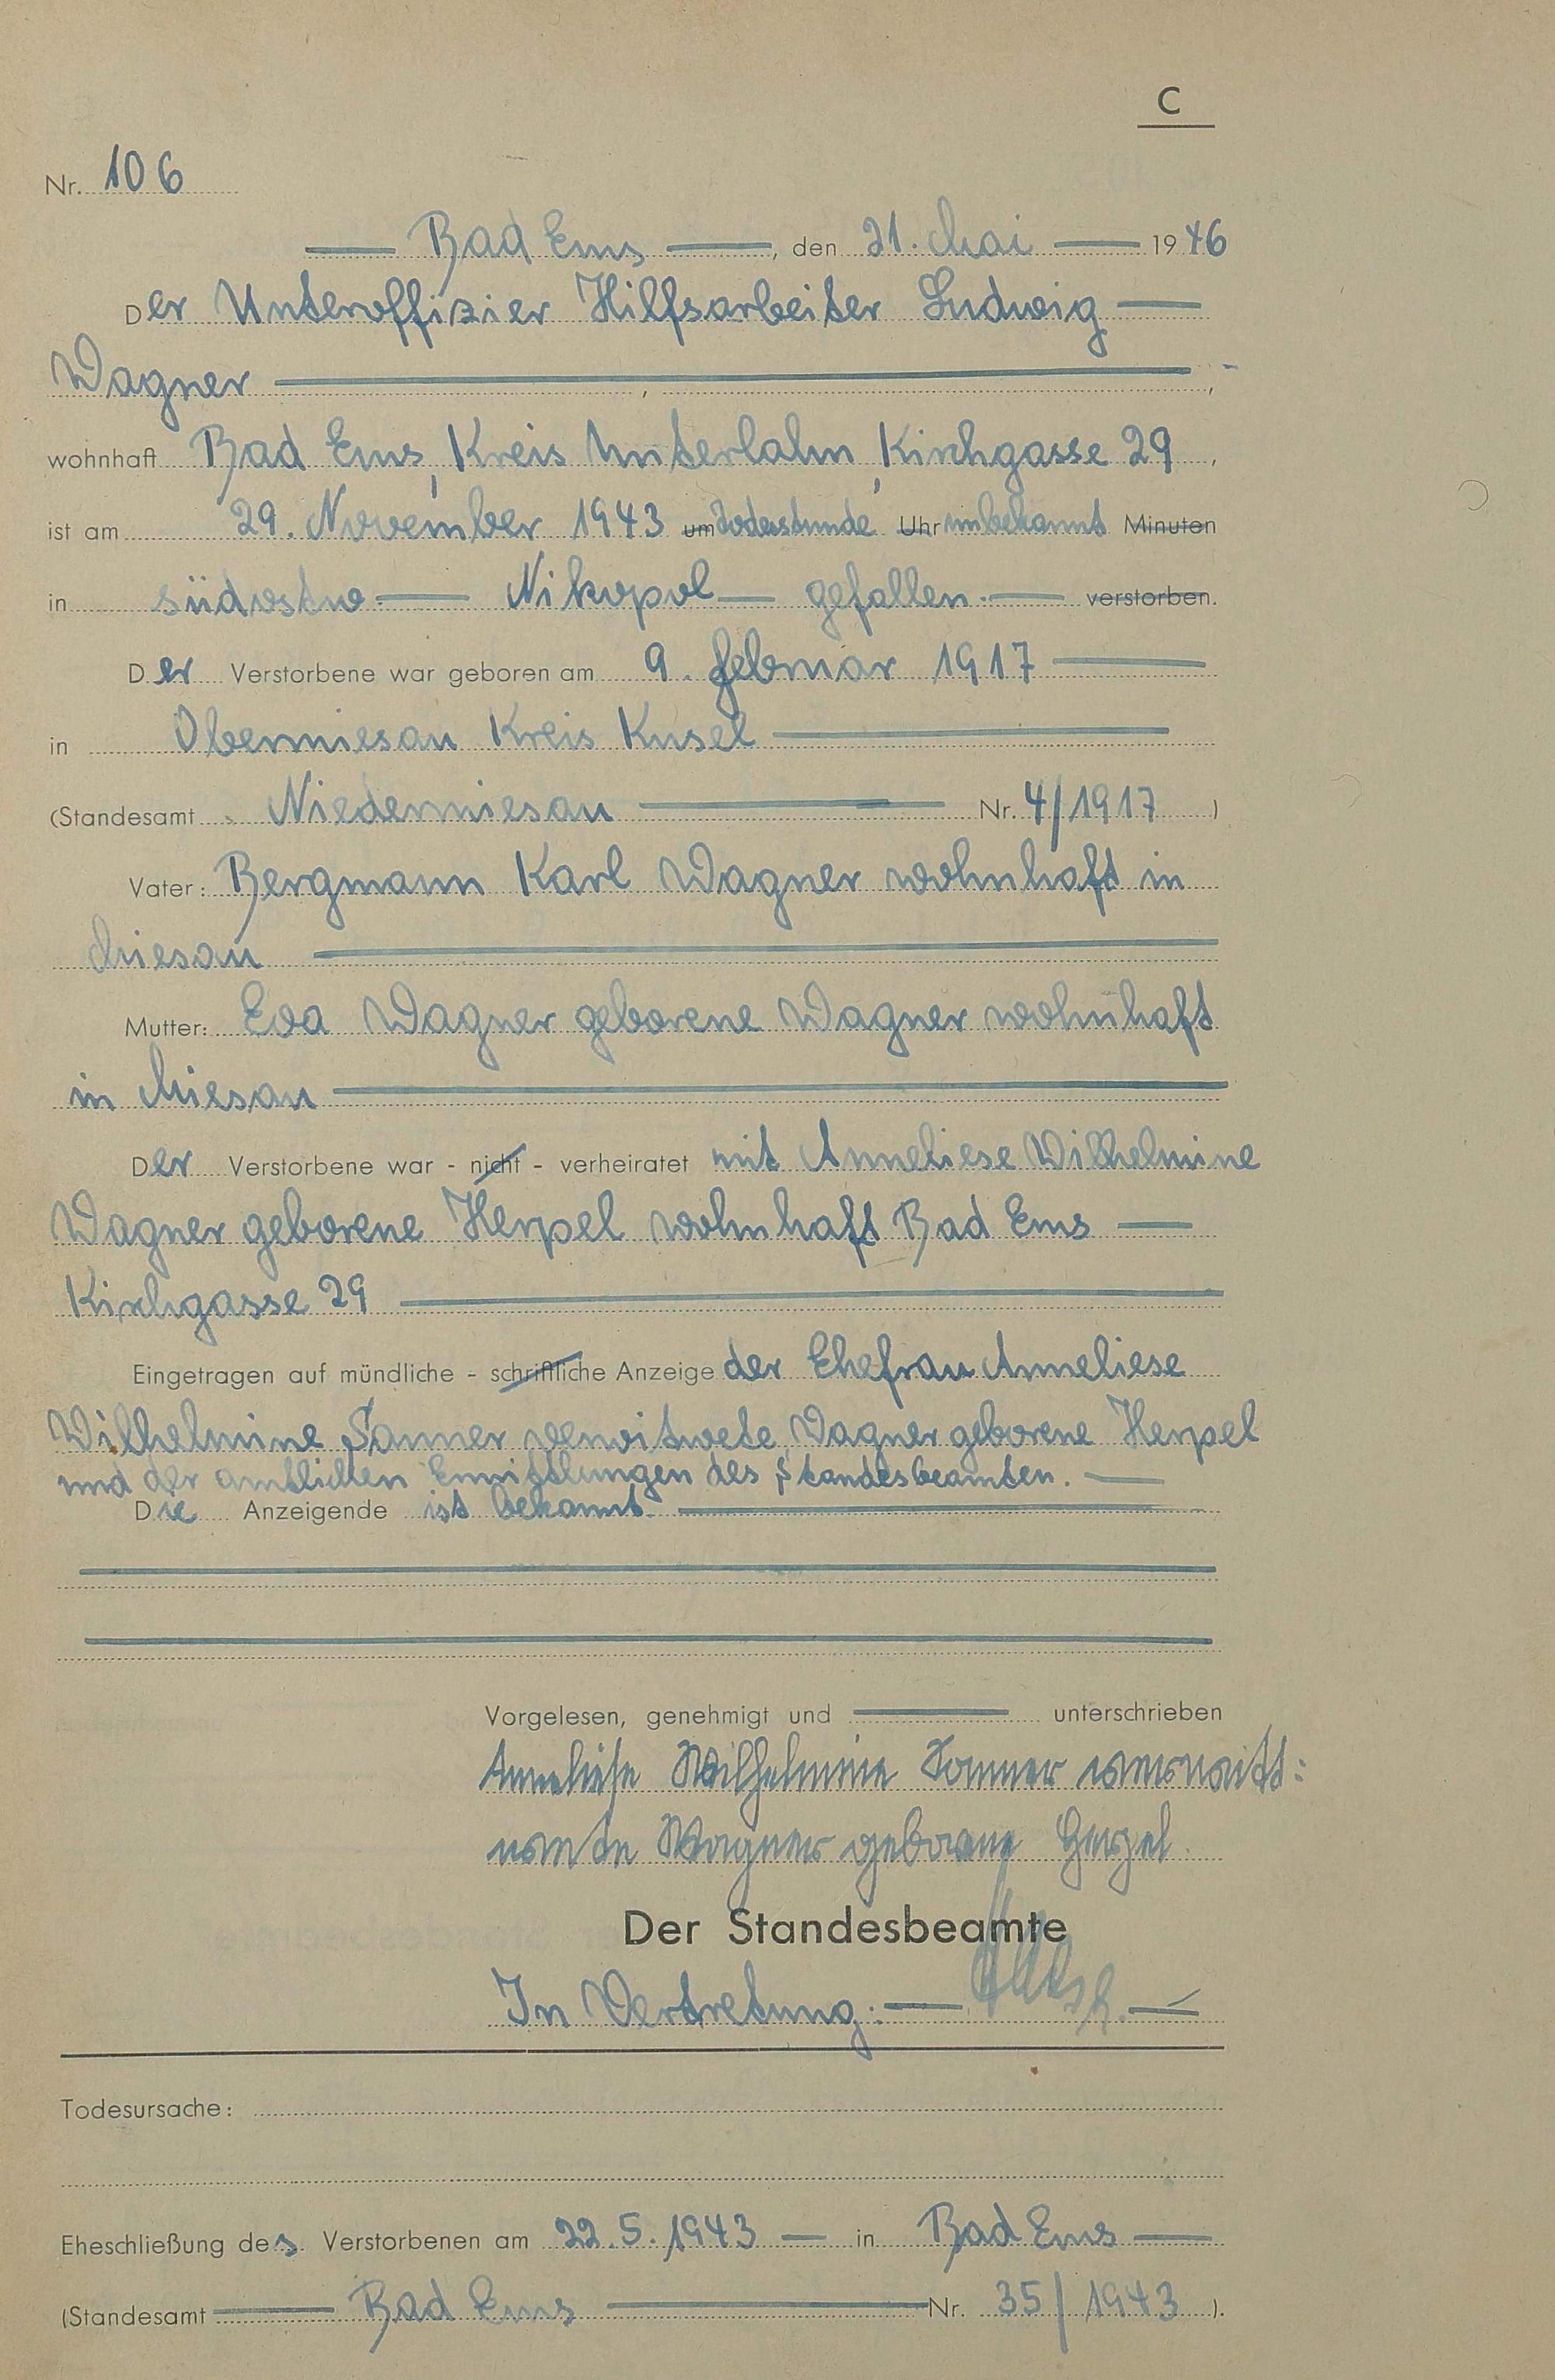 C
Nr. 106
Bad Ems, den 21. Mai 1946
Der Unteroffizier Hilfsarbeiter Ludwig
Wagner
wohnhaft Bad Ems, Kreis Unterlahn, Kirchgasse 29,
ist am 29. November 1943 um Todesstunde Uhr unbekannt Minuten
in südostw. Nikopol gefallen. verstorben.
Der Verstorbene war geboren am 9. Februar 1917
in Obermiesau Kreis Kusel
(Standesamt Niedermiesau Nr. 4/1917)
Vater: Bergmann Karl Wagner wohnhaft in
Miesau
Mutter: Eva Wagner geborene Wagner wohnhaft
in Miesau
Der Verstorbene war - nicht - verheiratet mit Anneliese Wilhelmine
Wagner geborene Herpel wohnhaft Bad Ems
Kirchgasse 29
Eingetragen auf mündliche - schriftliche Anzeige der Ehefrau Anneliese
Wilhelmine verwitwete Wagner geborene Herpel
und der amtlichen Ermittlungen des Standesbeamten.
Die Anzeigende ist bekannt.
Vorgelesen, genehmigt und unterschrieben
Anneliese Wilhelmine verwitt:
wete Wagner geborene Herpel.
Der Standesbeamte
In Vertretung:
Todesursache:
Eheschließung des Verstorbenen am 22.5.1943 in Bad Ems
(Standesamt Bad Ems Nr. 35/1943).